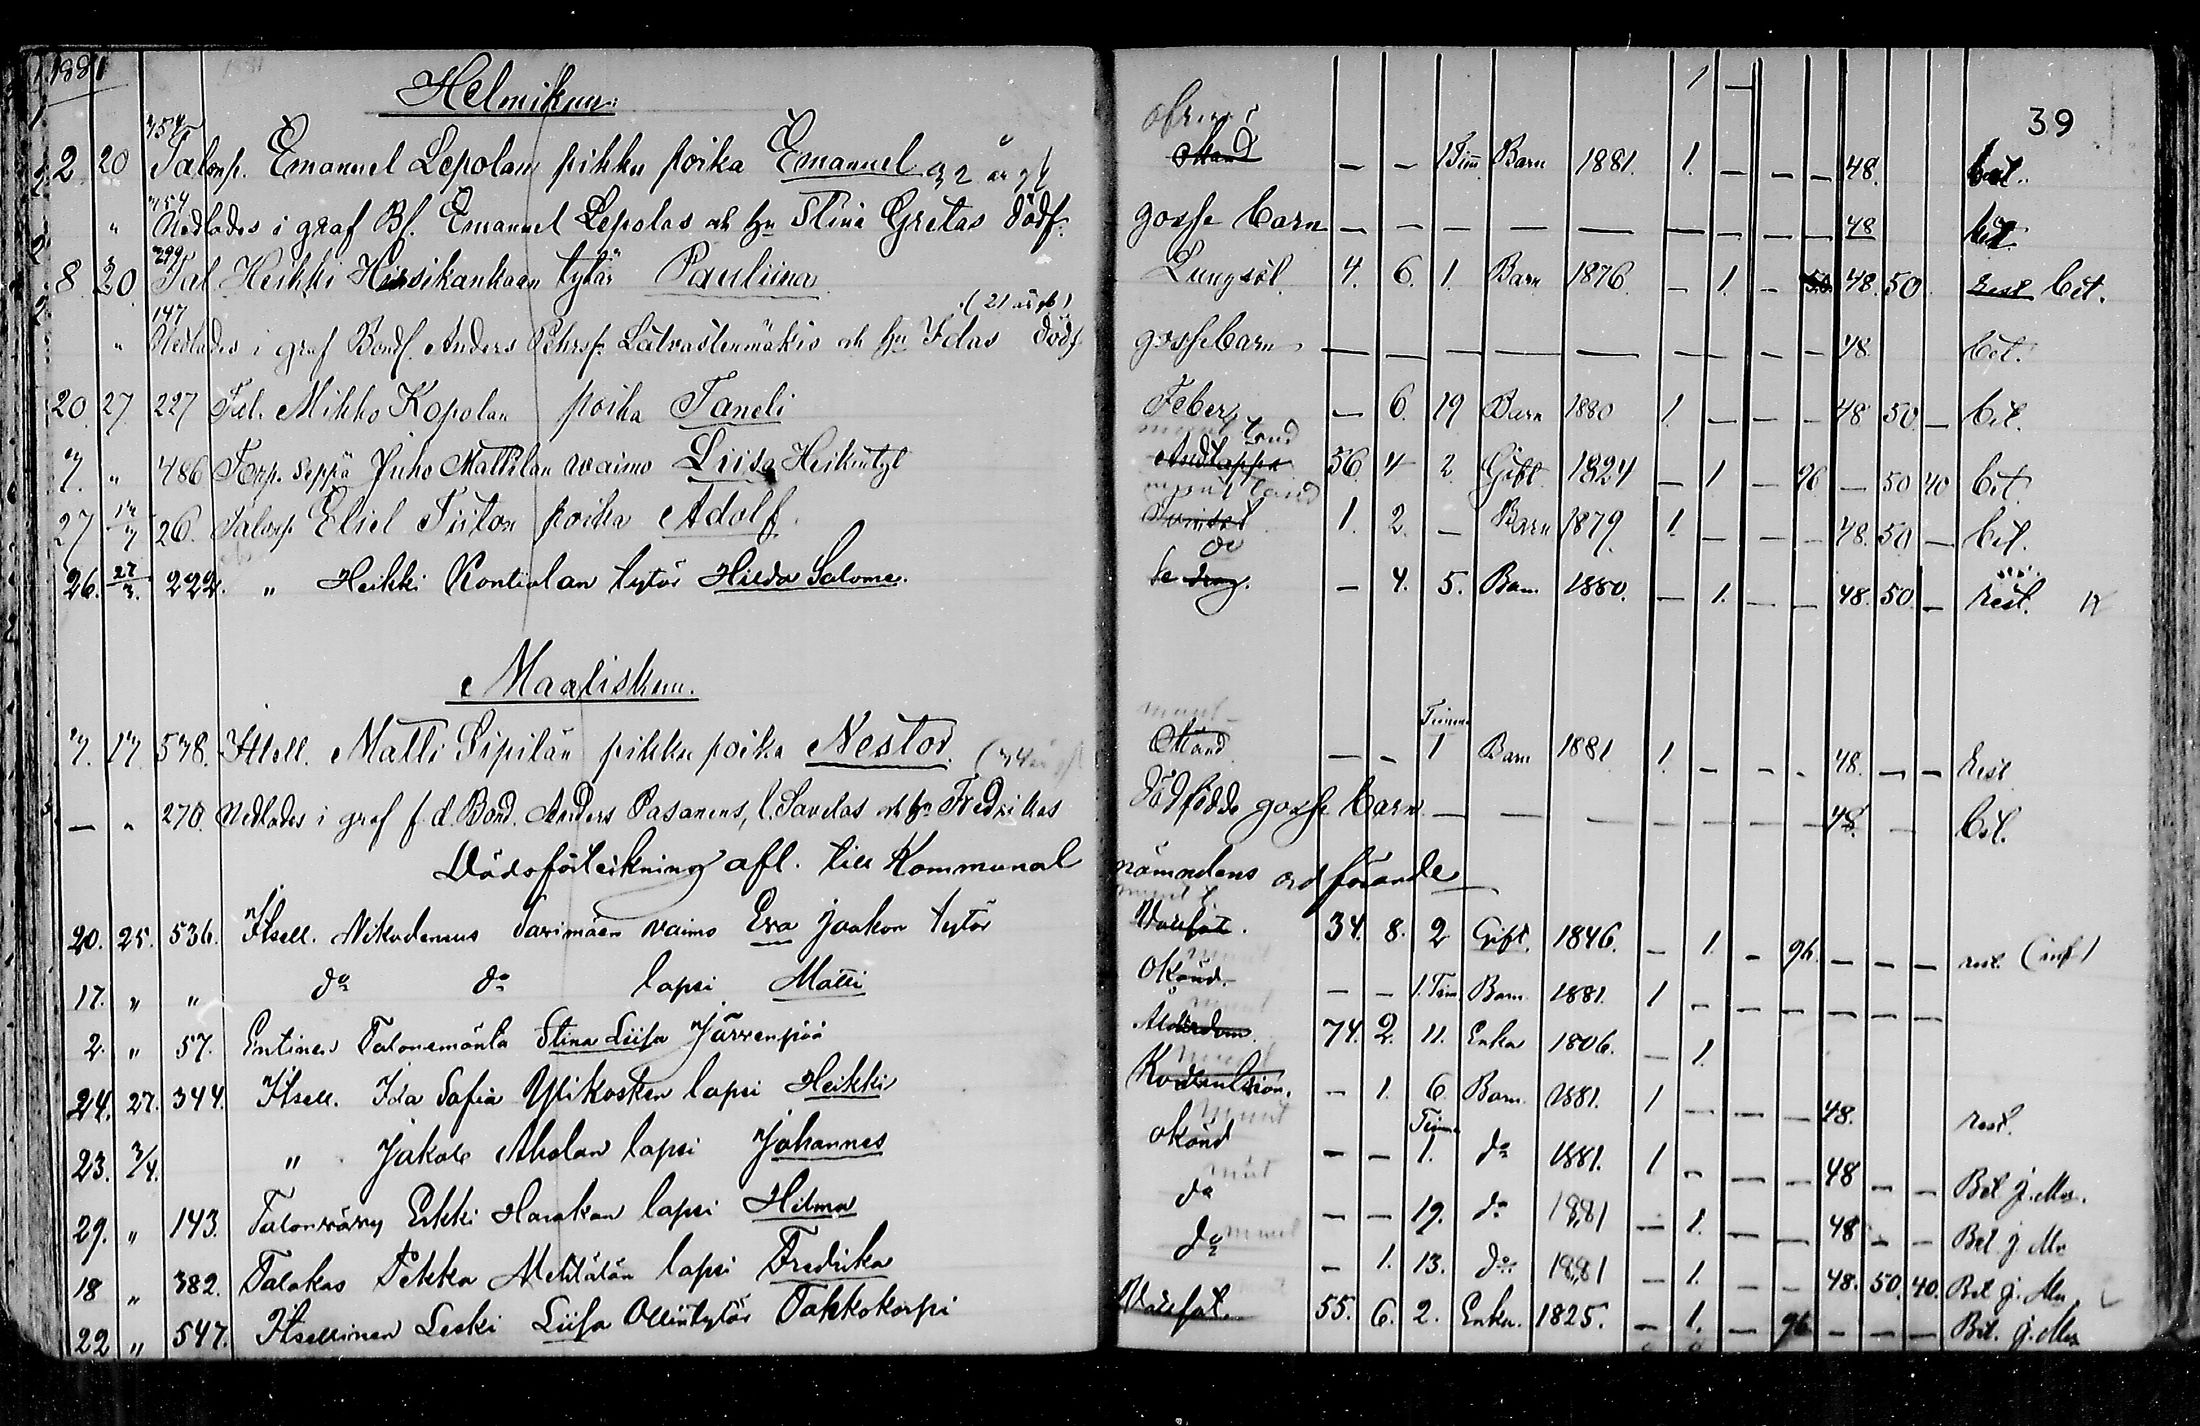 1881
Helmikuu
1 —
39
754
2 20 Talonp. Emanuel Lepolan pikku poika Emanuel 32 år gl — — 1 Tim Barn 1881. 1. — — — 48. bet.
754
" Nedlades i graf Bf. Emanuel Lepolas och hu Stina Gretas dödf. gosse barn — — — — — — — — — 48 bet.
299
8 20 Tal Heikki Hirsikankaan tytär Pauliina Lungsot. 4. 6. 1. Barn 1876 — 1. — 48. 50 rest bet.
147
(21 år gl)
" Nedlades i graf Bond. Anders Pehrss. Latvastenmäkis och hu Idas dödf. gossebarn — — — — — — — — — 48 bet.
20 27 227 Tal. Mikko Kopolan poika Taneli Feber — 6. 19 Barn 1880 1. — — — 48 50 — bet.
7. " 486 Torp. seppä Juho Mattilan vaimo Liisa Heikintyt 56 4 2 Gift 1824 — 1 — 96 — 50 40 bet.
27 17/7 26. Talonp. Eliel Tiiton poika Adolf 1. 2. — Barn 1879. 1. — — — 48. 50 — bet.
26. 27/3. 222. " Heikki Kontiolan tytär Hilda Salome. — 4. 5. Barn 1880. — 1. — — 48. 50 — rest.
Maaliskuu.
7. 17. 538. Itsell. Matti Sipilän pikku poika Nestor. Okänd — — Timma 1 Barn 1881 1. — — — 48. — — Rest
— " 270. Nedlades i graf f. d. Bond. Anders Pasanens, l. Savelas och hu Fredrikas dödfödde gosse barn — — — — — — — — 48. — bet.
Dödsförteckning afl. till Kommunal nämndens ordförande
20. 25. 536. Itsell. Nikodemus Savimäen vaimo Eva Jaakon tytär 34. 8. 2 Gift. 1846. — 1. — 96. — — — rest. (inf)
17. " " do do lapsi Matti Okänd. — — 1. Tim. Barn. 1881. 1 — — — — — —
2. " 57. Entinen Talonemäntä Stina Liisa Järvenpää Ålderdom. 74. 2. 11. Enka 1806. — 1.
24. 27. 344. Itsell. Ida Sofia Ylikosken lapsi Heikki Konvulsion. — 1. 6. Barn. 1881. 1 — — — 48. rest.
23. 3/4. " Jakob Aholan lapsi Johannes Okänd — — Timma 1. do 1881. 1 — — — 48 — — Bet. J. Mn.
29. " 143. Talonvävy Erkki Harakan lapsi Hilma do — — 19. do 1881 — 1. — — 48 — — Bet. J. Mn
18 " 382. Talokas Pekka Mehtälän lapsi Fredrika do — 1. 13. do 1881 — 1. — — 48. 50. 40. Bet. J. Mn.
22 " 547. Itsellinen Leski Liisa Ollintytär Takkokorpi 55. 6. 2. Enka. 1825. — 1. — 96 — — — Bet. J. Mn